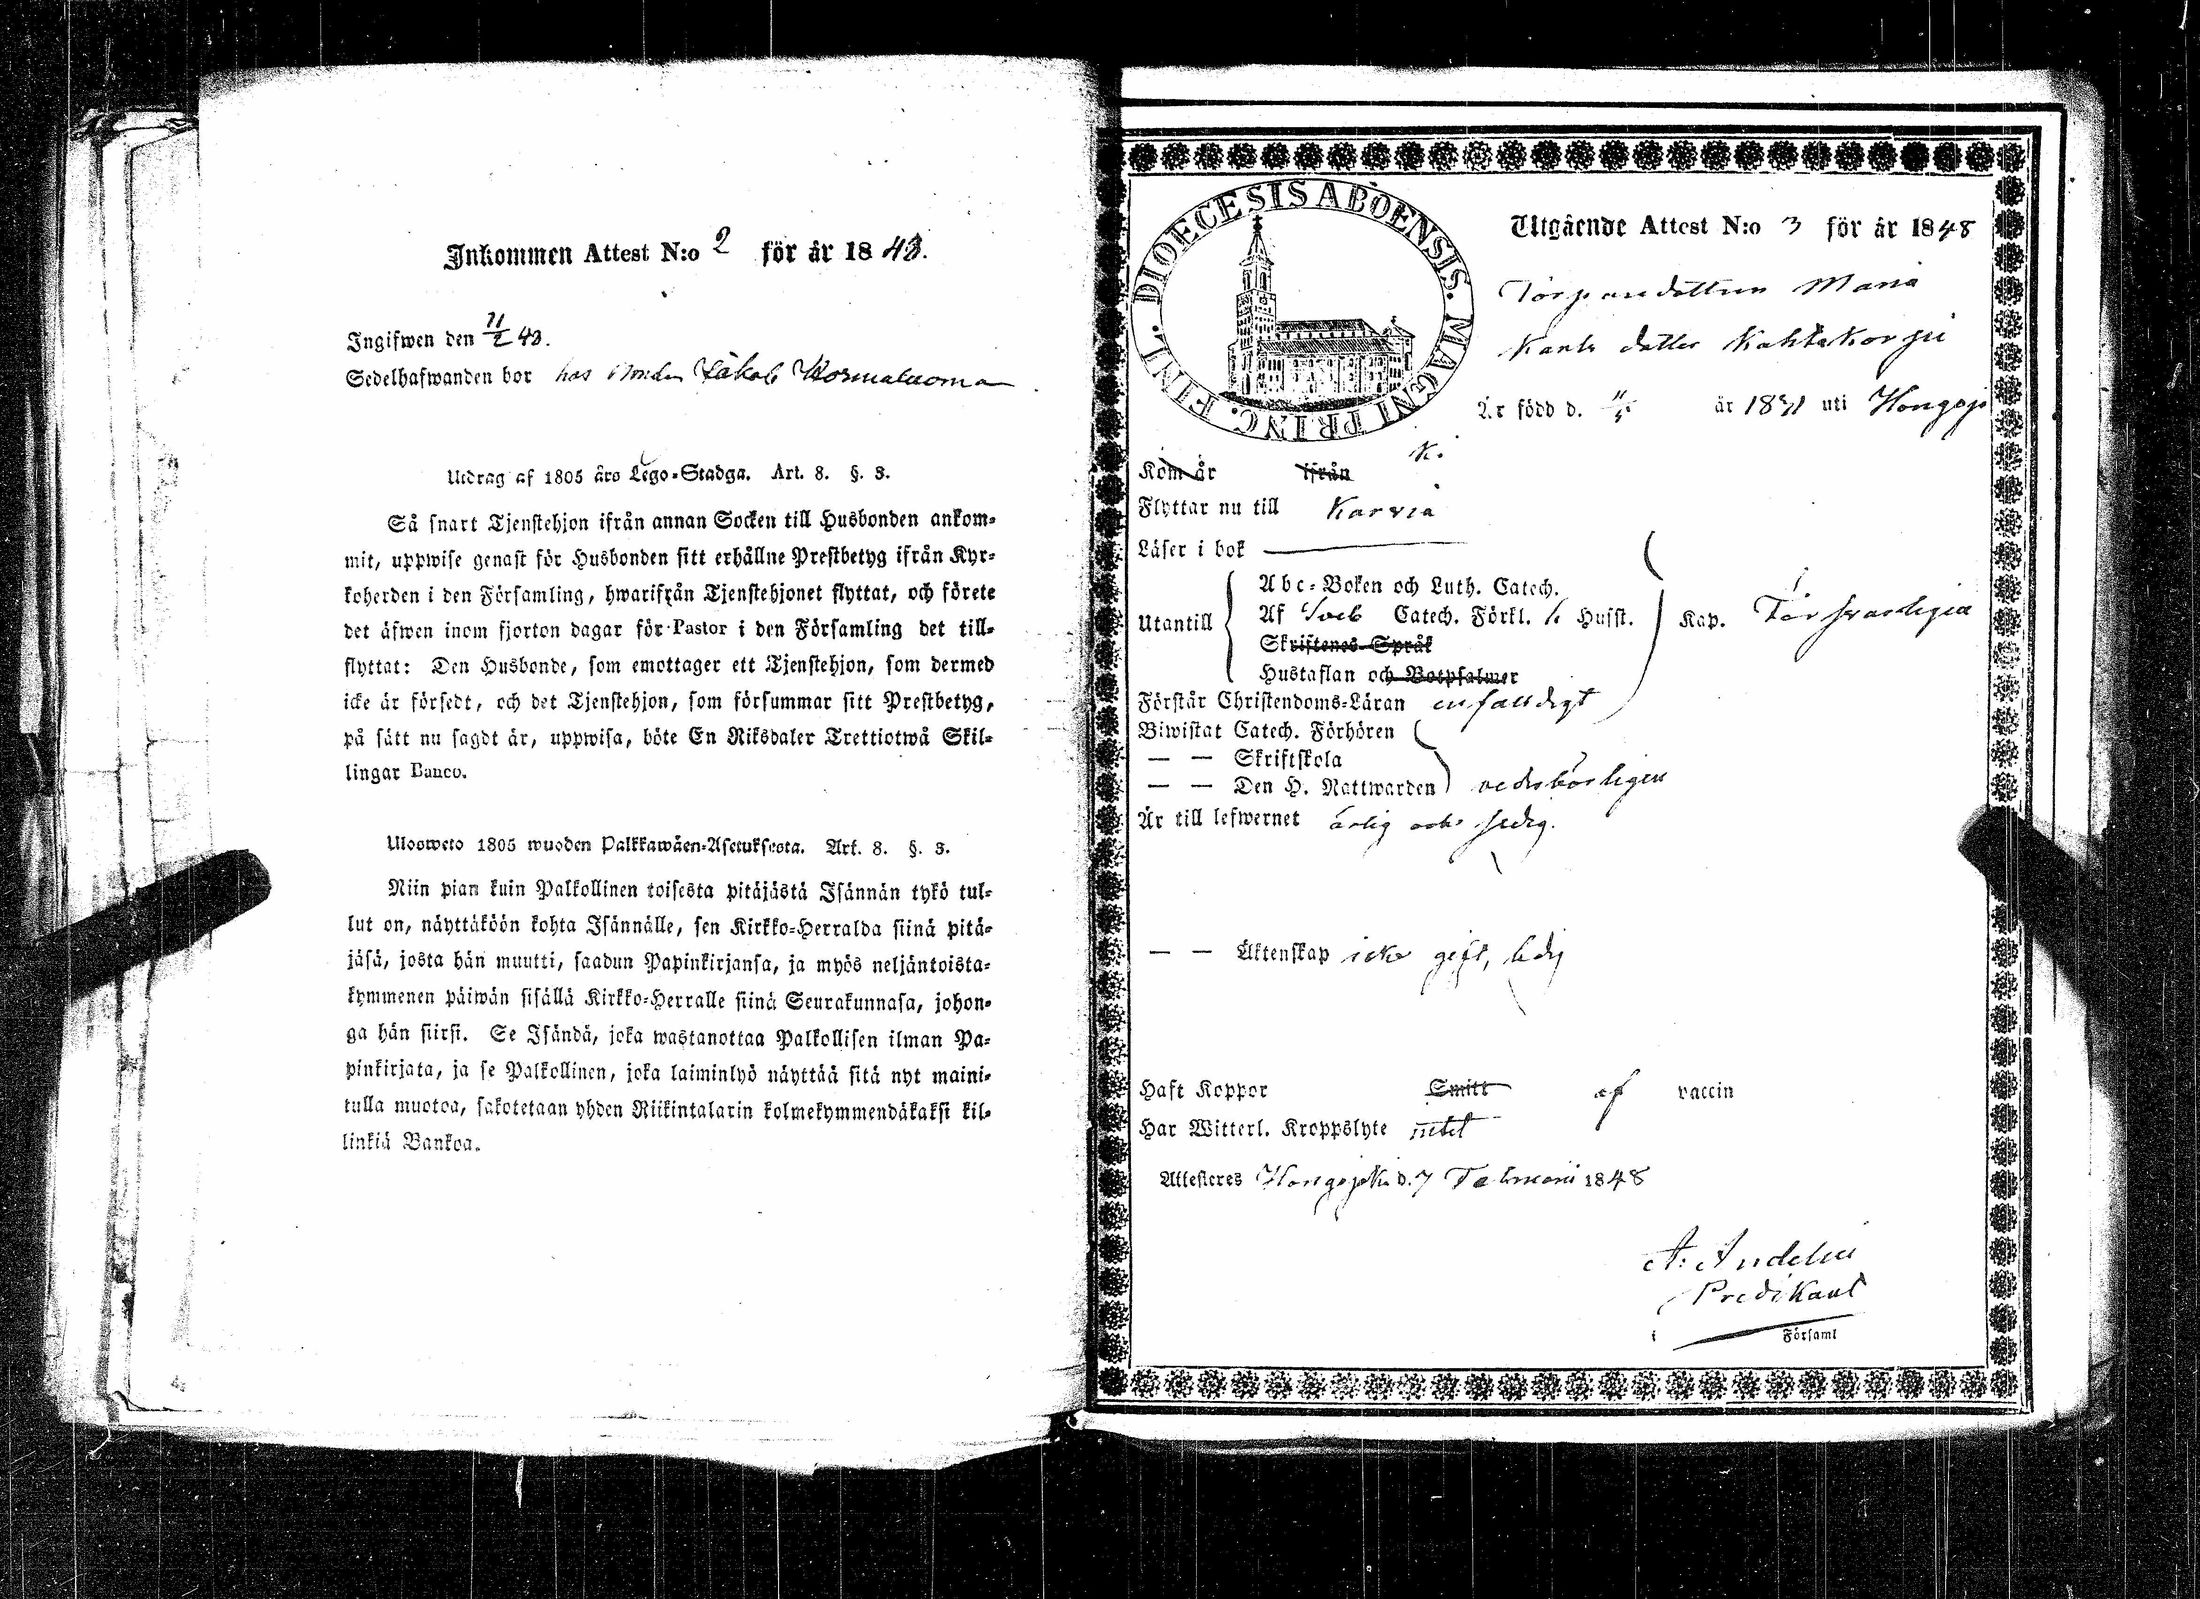 Inkommen Attest N:o 2 för år 1848.
Ingifwen den 11/2 48.
Sedelhafwanden bor hos bonden Jakob
Utdrag af 1805 års Lego-Stadga. Art. 8. §. 3.
Så snart Tjenstehjon ifrån annan Socken till Husbonden ankom-
mit, uppwise genast för Husbonden sitt erhållne Prestbetyg ifrån Kyr-
koherden i den Församling, hwarifrån Tjenstehjonet flyttat, och förete
det äfwen inom fjorton dagar för Pastor i den Församling det till-
flyttat: Den Husbonde, som emottager ett Tjenstehjon, som dermed
icke är försedt, och det Tjenstehjon, som försummar sitt Prestbetyg,
på sätt nu sagdt är, uppwisa, böte En Riksdaler Trettiotwå Skil-
lingar Banco.
Ulosweto 1805 wuoden Palkkawäen-Asetuksesta. Art. 8. §. 3.
Niin pian kuin Palkollinen toisesta pitäjästä Isännän tykö tul-
lut on, näyttäköön kohta Isännälle, sen Kirkko-Herralda siinä pitä-
jäsä, josta hän muutti, saadun Papinkirjansa, ja myös neljäntoista-
kymmenen päiwän sisällä Kirkko-Herralle siinä Seurakunnasa, johon-
ga hän siirsi. Se Isändä, joka wastanottaa Palkollisen ilman Pa-
pinkirjata, ja se Palkollinen, joka laiminlyö näyttää sitä nyt maini-
tulla muotoa, sakotetaan yhden Riikintalarin kolmekymmendäkaksi kil-
linkiä Bankoa.
DIOECESIS ABOENSIS. MAGNI PRINC. FINL.
Utgående Attest N:o 3 för år 1848
Torparedottren Maria
dotter
Är född d. år 1831 uti Hongojo
ki
Kom år ifrån
Flyttar nu till Karvia
Läser i bok
Utantill
Abc-Boken och Luth. Catech.
Af Sveb Catech. Förkl. Husst.
Skriftenes-Språk
Hustaflan och Botpsalmer
Kap. Försvarligen
Förstår Christendoms-Läran enfaldigt
Biwistat Catech. Förhören
— — Skriftskola
— — Den H. Nattwarden vederbörligen
Är till lefwernet ärlig och sedig.
— — Äktenskap icke gift, ledig
Haft Koppor Smitt af vaccin
Har Witterl. Kroppslyte intet
Attesteres Hongojoki d. 7 Februarii 1848
A: Andelin
Predikant
i Församl